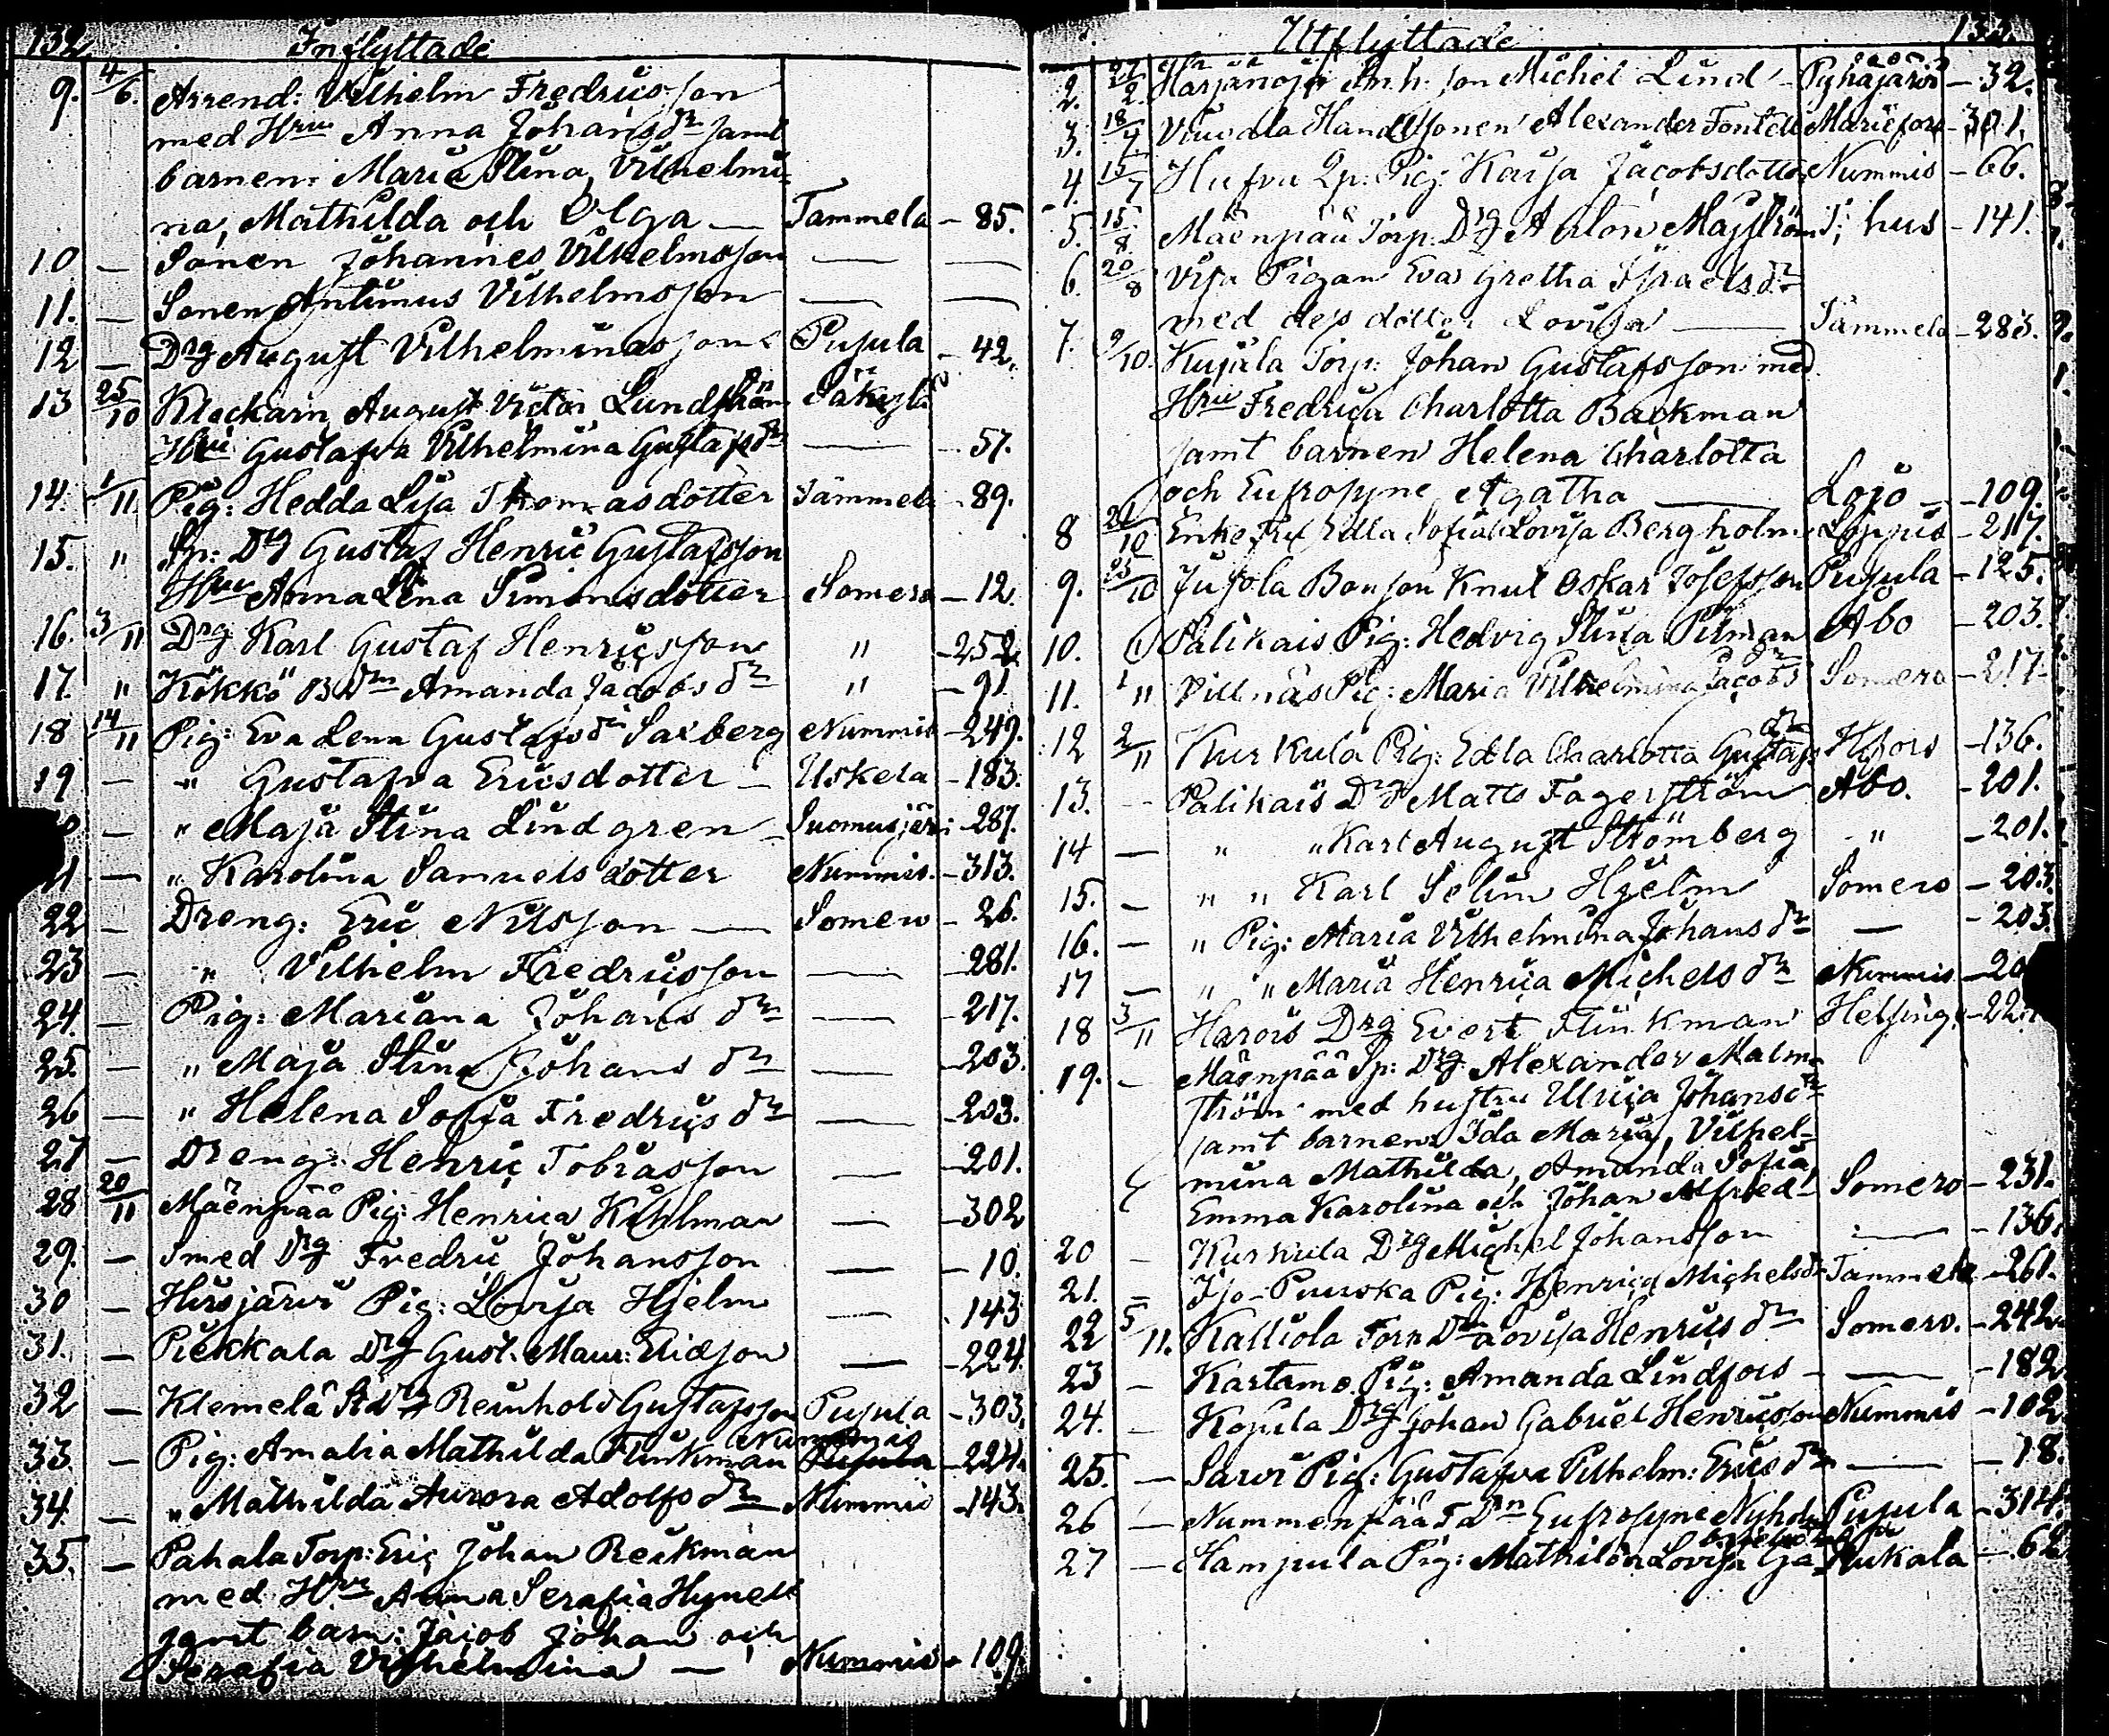 132 Inflyttade
9. 4/6. Arrend: Vilhelm Fredricsson
med Hru Anna Johansdr samt
barnen: Maria Stina, Vilhelmi-
na, Mathilda och Olga — Tammela - 85.
10 — Sonen Johannes Vilhelmsson — —
11. — Sonen Antinus Vilhelmsson — —
12 — Drg August Vilhelminasson Pusula - 42.
13 25/10 Klockarn August Victor Lundström Säkylä
Hru Gustafva Vilhelmina Gustafsdr — - 57.
14. 1/11 Pig: Hedda Lisa Thomasdotter Tammela - 89.
15. " Sp: Drg Gustaf Henric Gustafsson
Hru Anna Lena Simonsdotter Somero - 12.
16. 3/11 Drg Karl Gustaf Henricsson " - 252.
17. " Kökkö BDr Amanda Jacobsdr " - 91
18 14/11 Pig: Eva Lena Gustafsdr Saxberg Nummis - 249.
19 — " Gustafva Ericsdotter — Uskela - 183.
— " Maja Stina Lindgren Suomusjärvi - 287.
— " Karolina Samuelsdotter Nummis. - 313.
22 — Dreng: Eric Nilsson — Somero - 26.
23 — " Vilhelm Fredricsson — - 281.
24. — Pig: Mariana Johans dr — - 217.
25. — " Maja Stina Johans dr — - 203.
26 — " Helena Sofia Fredrics dr — - 203.
27 — Dreng: Henric Tobiasson — - 201.
28 20/11 Mäenpää Pig: Henrica Kihlman — - 302
29. — Smed Drg Fredric Johansson — - 10.
30 — Hirsjärvi Pig: Lovisa Hjelm — - 143
31. — Piekkala Drg Gust. Maur: Ericsson — - 224.
32 — Klemelä Reinhold Gustafsson Pusula - 303.
Nummis
33. — Pig: Amalia Mathilda Flinkman Pusula - 224.
34. — " Mathilda Aurora Adolfs dr Nummis - 143.
35. — Pahala Torp: Eric Johan Reikman
med Hru Anna Serafia Hynell
samt barn: Jacob Johan och
Serafia Vilhelmina — Nummis - 109.
Utflyttade
2. 27/2. Härjänoja Inh. son Michel Lind Pyhäjärvi - 32.
3. 18/4. Viuvala Handl. sonen Alexander Fontell - 301.
4. 15/7 Hufva Qp: Pig: Kaisa Jacobsdotter Nummis - 66.
5. 15/8 Mäenpää Torp. Drg Anton Majström T; hus - 141.
6. 20/8 Visa Pigan Eva Gretha Israels dr
med dess dotter Lovisa — Tammela - 283.
7. 9/10. Kujala Torp: Johan Gustafsson med
Hru Fredrica Charlotta Backman
samt barnen Helena Charlotta
och Eufrosyne Agatha — Lojo - 109.
8 /10 Enkefru Edla Sofia Lovisa Bergholm Loppis - 217.
9. 25/10 Jusola Bonson Knut Oskar Josefsson Pusula - 125.
10. Palikais Pig: Hedvig Stina Pihlman Åbo - 203.
11. 1/11 Villnäs Pig: Maria Vilhelmina Jacobs dr Somero - 217.
12 2/11 Kurkula Pig: Edla Charlotta Gustafs dr Hfors - 136.
13. — Palikais Drg Matts Fagerström Åbo. - 201.
14 — " " Karl August Strömberg " - 201.
15. — " " Karl Selim Hjelm Somero - 203.
16. — " Pig: Maria Vilhelmina Johans dr — - 203.
17 — " " Maria Henrica Michels dr Nummis - 20
18 3/11 Harois Drg Evert Flinkman Helsing: - 22
19. — Mäenpää Sp: Drg Alexander Malm-
ström med hustru Ulrica Johansdr
samt barnen: Ida Maria, Vilhel-
mina Mathilda, Amanda Sofia,
Emma Karolina och Johan Alfred Somero - 231.
20 — Kurkula Drg Michel Johansson — - 136.
21. — Iso-Puuska Pig: Henrica Michelsdr Tammela - 261.
22 5/11. Kalliola Torp. Dr Lovisa Henrics dr Somero. - 242.
23 — Kartamo Pig: Amanda Lindfors — - 182
24. — Kopila Drg Johan Gabriel Henricsson Nummis - 102
25. — Sarvi Pig: Gustafva Vilhelm: Erics dr — - 18.
26 — Nummenpää Eufrosyne Nyholm Pusula - 314.
27 — Hampula Pig: Mathilda Lovisa - 62